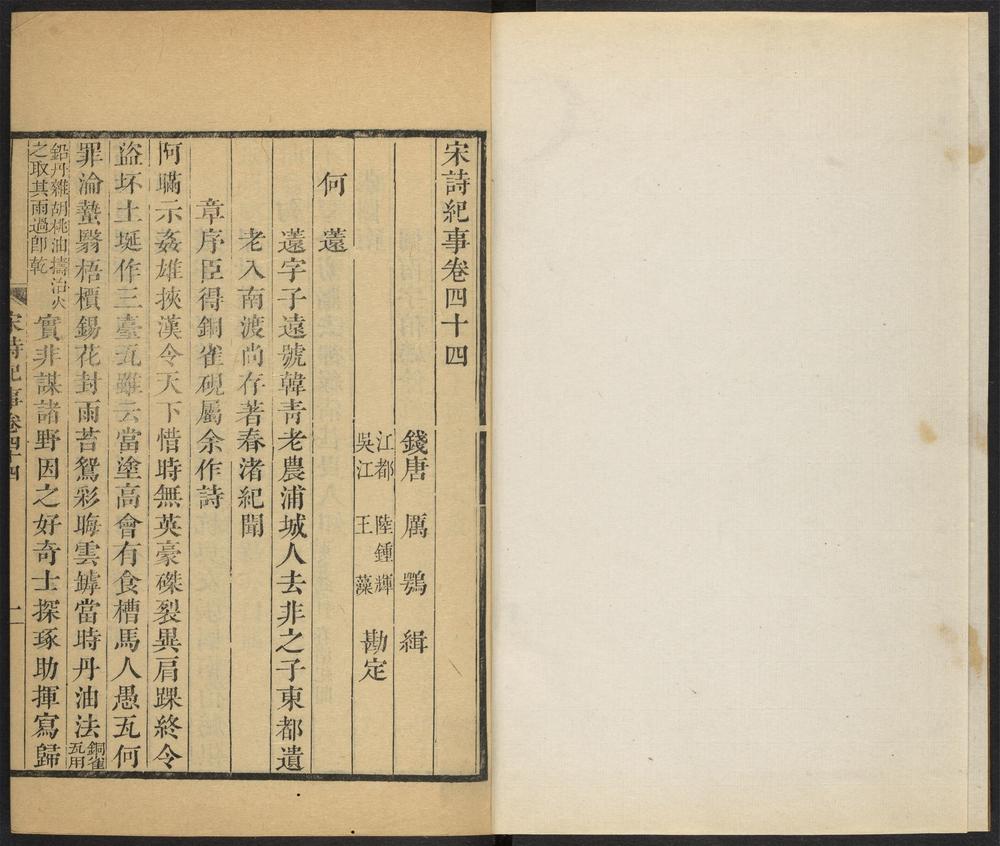 宋詩紀事卷四十四
錢唐 厲 鶚 緝
江都 陸鍾輝
吳江 王 藻 勘定
何 薳
薳字子遠號韓青老農浦城人去非之子東都遺
老入南渡尚存著春渚紀聞
章序臣得銅雀硯屬余作詩
阿瞞示姦雄挾漢令天下惜時無英豪磔裂異肩踝終令
盜坏土埏作三臺瓦雖云當塗高會有食槽馬人愚瓦何
罪淪蟄翳梧檟錫花封雨苔鴛彩晦雲罅當時丹油法銅雀
瓦用
鉛丹雜胡桃油擣治火
之取其雨過即乾
實非謀諸野因之好奇士探琢助揮寫歸
宋詩紀事卷四十四
一